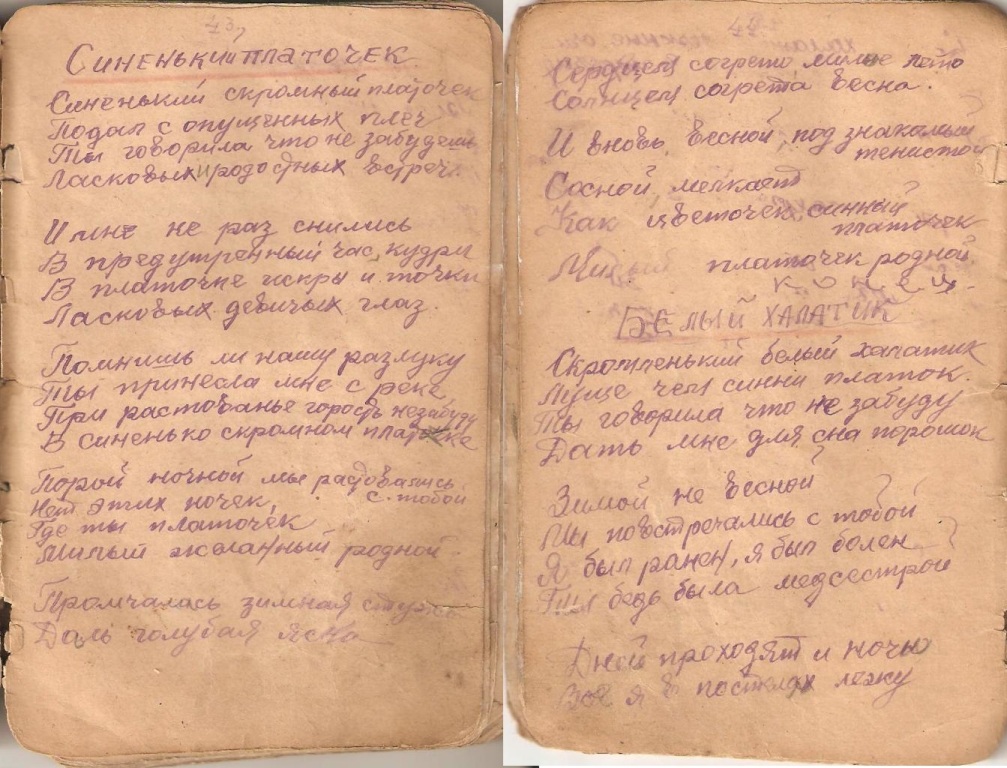 43
Синенький платочек
Синенький скромный платочек
Подал с опущенных плеч
Ты говорила что не забудешь
Ласковых и родостных встреч.
И мне не раз снились
В предутренный час, кудри
В платочке искры и точки
Ласковых девичых глаз.
Помнишь ли нашу разлуку
Ты принесла мне с реке
При растованье горость незабуду
В синенько скромном платочке
Порой ночной мы растовались
с тобой
Нет этих ночек,
Где ты платочек
Милый желанный родной.
Промчалась зимная стужа
Даль голубая ясна
Сердцем согрето мимне лето
Солнцем согрета весна.
И вновь весной, под знакомый
тенистой
Сосной, мелкает
Как цветочек синный
платочек
Милый платочек родной
конец.
Белый халатик
Скромненький белый халатик
Луще чем синни платок.
Ты говорила что не забуду
Дать мне для сна порошок
Зимой не весной
Мы повстречались с тобой
Я был ранен, я был болен
Ты ведь была медсестрой
Дней проходят и ночи
Все я в постелях лежу